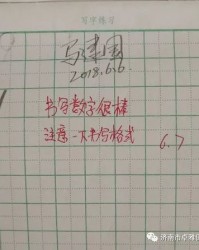 写字练习
马建国
2018.6.6.
书写数字很棒
注意一下书写格式
6.7